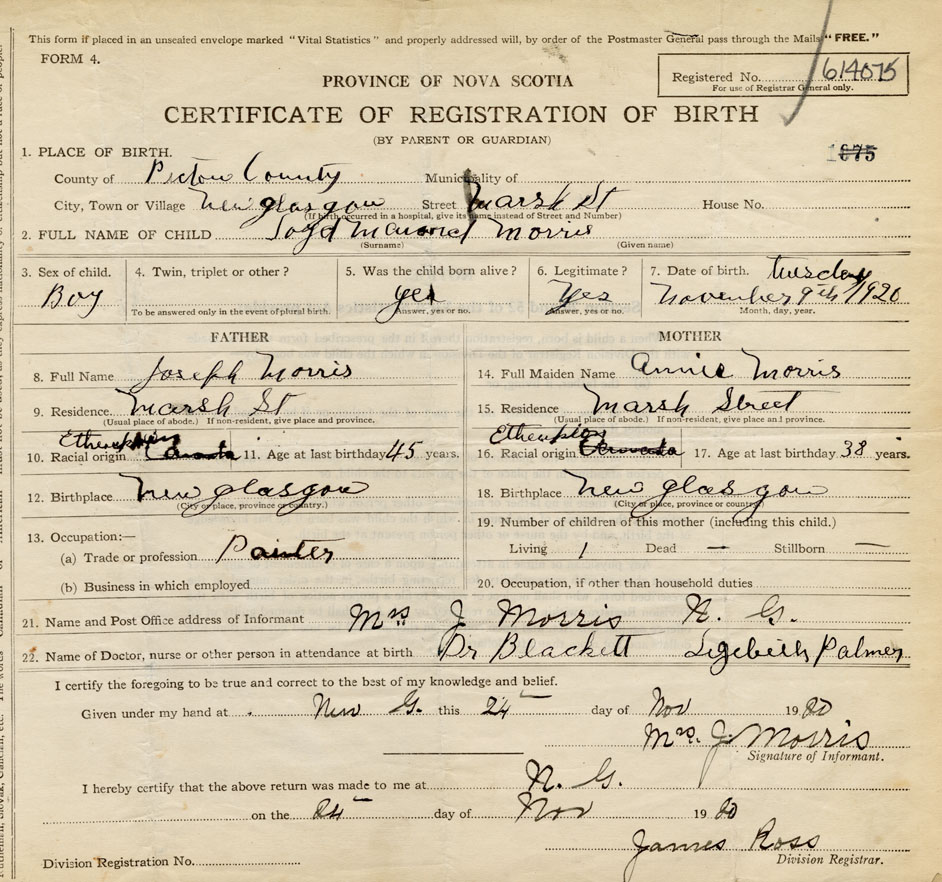 This form if placed in an unsealed envelope marked "Vital Statistics" and properly addressed will, by order of the Postmaster General pass through the Mails "FREE."
FORM 4.
PROVINCE OF NOVA SCOTIA
Registered No. 614075
For use of Registrar General only.
CERTIFICATE OF REGISTRATION OF BIRTH
(BY PARENT OR GUARDIAN)
1. PLACE OF BIRTH.
County of Pictou County Municipality of
City, Town or Village New glasgow Street Marsh St House No.
(If birth occurred in a hospital, give its name instead of Street and Number)
2. FULL NAME OF CHILD Morris
(Surname) (Given name)
3. Sex of child. 4. Twin, triplet or other? 5. Was the child born alive? 6. Legitimate? 7. Date of birth. tuesday
Boy yes Yes November 9th 1920
To be answered only in the event of plural birth. Answer, yes or no. Answer, yes or no. Month, day, year.
FATHER MOTHER
8. Full Name Joseph Morris 14. Full Maiden Name annie Morris
9. Residence Marsh St 15. Residence Marsh Street
(Usual place of abode.) If non-resident, give place and province. (Usual place of abode.) If non-resident, give place and province.
10. Racial origin 11. Age at last birthday 45 years. 16. Racial origin 17. Age at last birthday 38 years.
12. Birthplace New glasgow 18. Birthplace New glasgow
(City or place, province or country.) (City or place, province or country.)
19. Number of children of this mother (including this child.)
13. Occupation:—
(a) Trade or profession Painter Living 1 Dead — Stillborn —
(b) Business in which employed 20. Occupation, if other than household duties
21. Name and Post Office address of Informant Mrs J. Morris N. G.
22. Name of Doctor, nurse or other person in attendance at birth Dr Blackett Palmer
I certify the foregoing to be true and correct to the best of my knowledge and belief.
Given under my hand at New G. this 24 day of Nov 1920
Mrs. J. Morris
Signature of Informant.
I hereby certify that the above return was made to me at N. G.
on the 24 day of Nov 1920
James Ross
Division Registration No. Division Registrar.